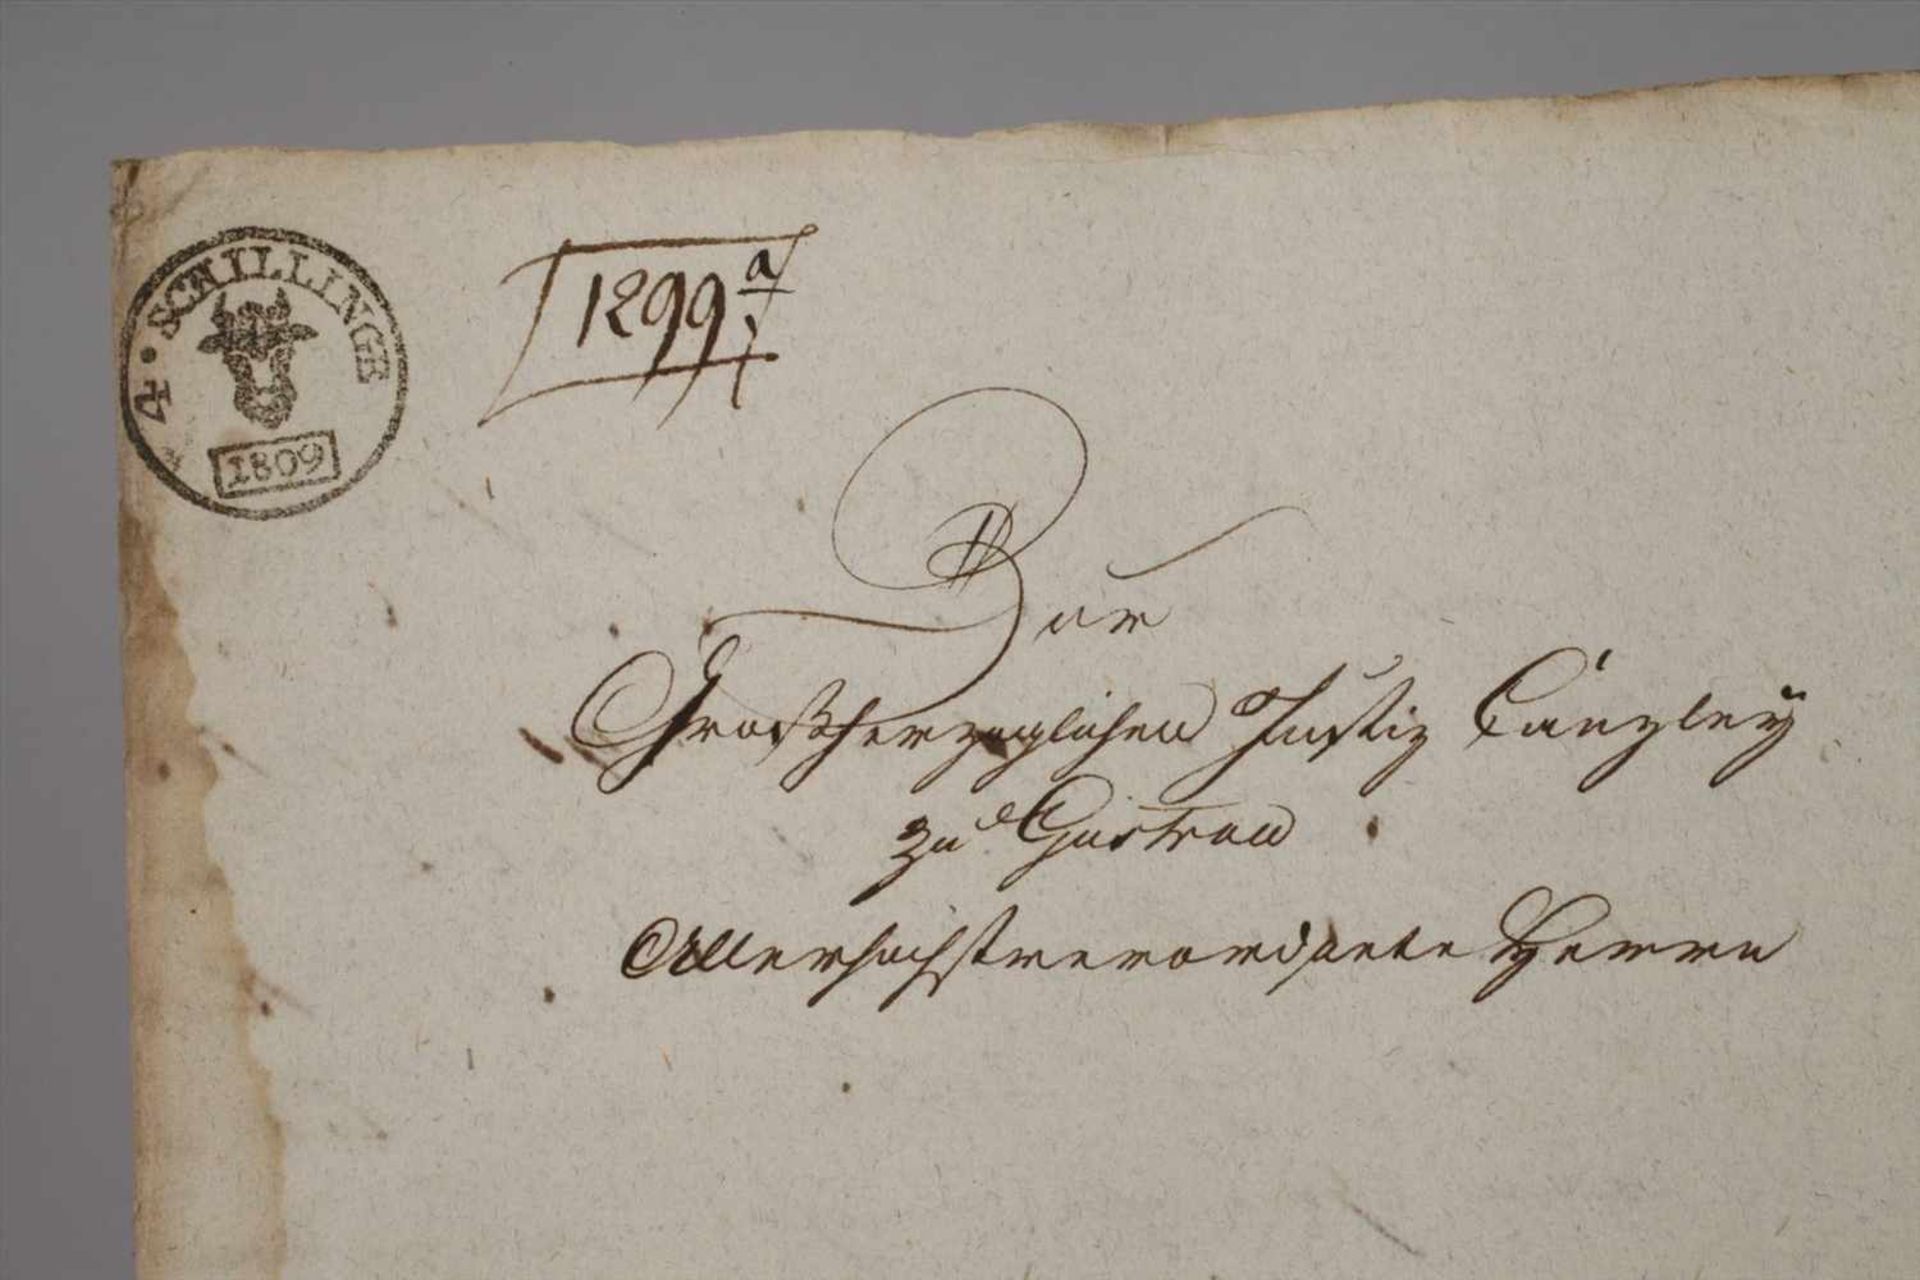 4 • SCHILLINGE
1809
1299 a
Zur
Großherzoglichen Justiz Canzley
zu Güstrow
Allerhöchstverordnete Herren